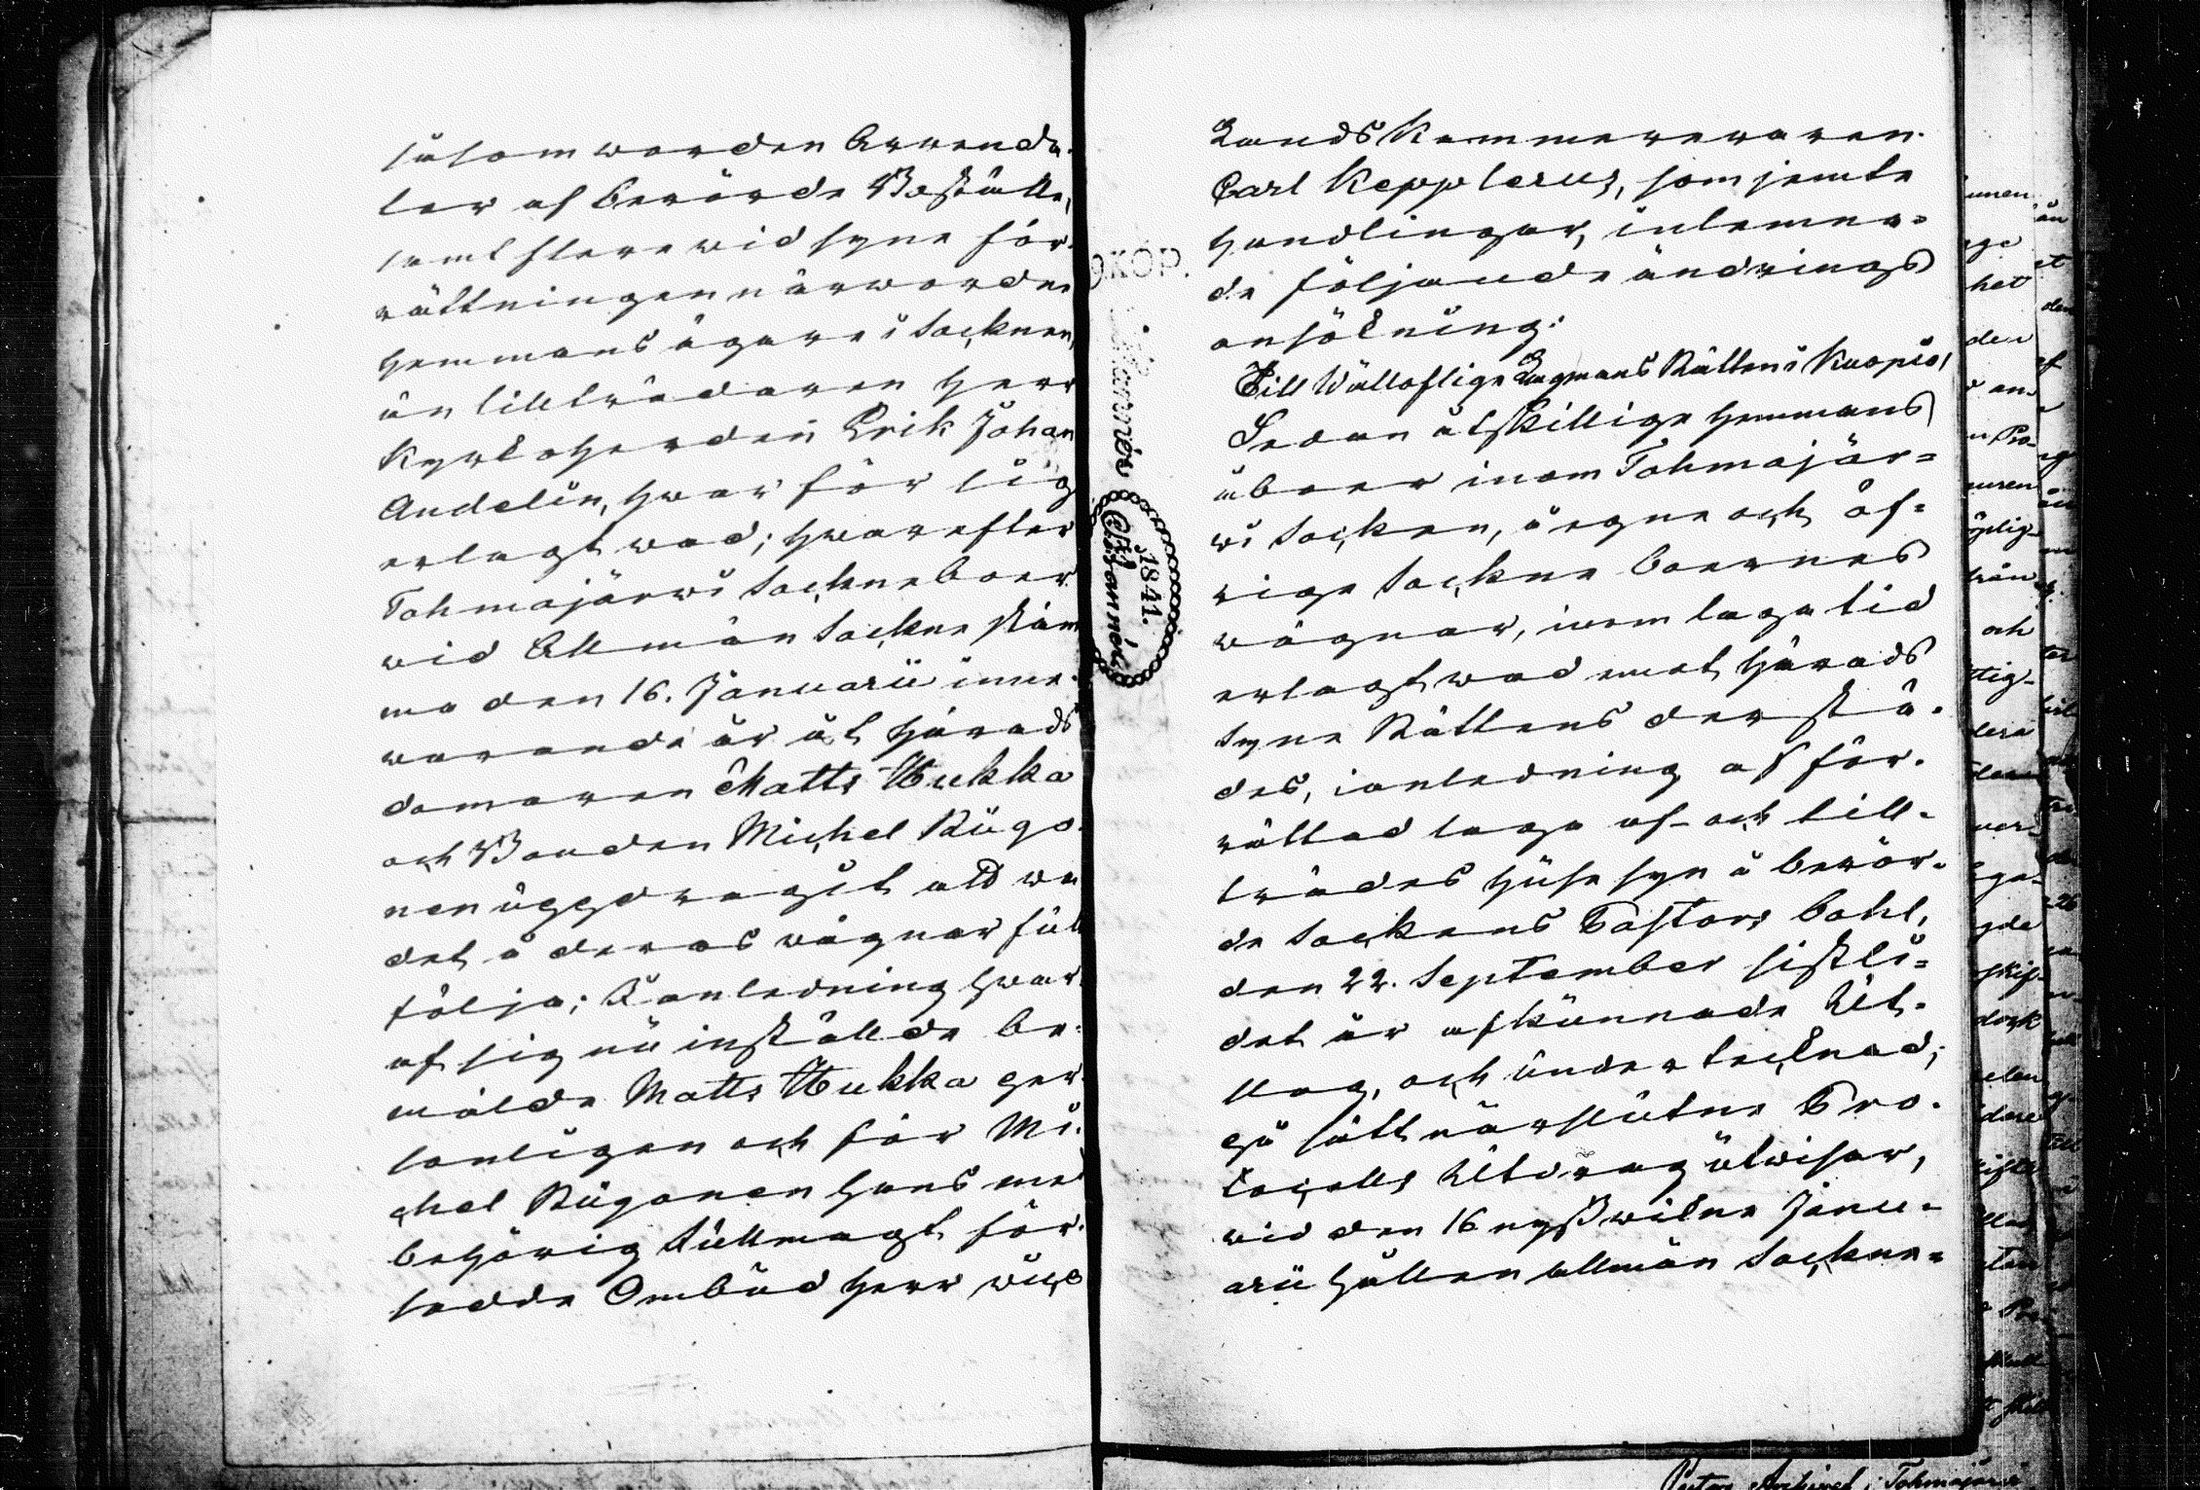 såsom worden Arrenda-
tor af berörde Boställe,
samt flere wid syne för-
rättningen närwordne
hemmans ägare i Socknen,
än tillträdaren Herr
Kyrkoherden Erik Johan
Andelin, hwar för sig
erlagt wad; hwarefter
Tohmajärwi Sockneboer
wid Allmän Sockne stäm
ma den 16. Januarii inne-
warande år åt Härads
domaren Matts Hukka
och Bonden Michel Rügo-
nen uppdragit att wa
det å deras wägnar full
följa; I anledning hwar
af sig nu inställde be-
mälde Matts Hukka per
sonligen och för Mi-
chel Rügonen hans med
behörig fullmagt för-
sedde Ombud Herr wice
LandsKammereraren
Carl Kepplerus, som jemte
handlingar, inlemna-
de följande ändrings
ansökning:
Till Wälloflige Lagmans Rätten i Kuopio,
Sedan åtskillige hemmans
åboer inom Tohmajär-
wi Socken, å egne och öf-
rige Sockne boernes
wägnar, inom laga tid
erlagt wad emot Härads
Syne Rättens derstä-
des, i anledning af för-
rättad laga af- och till-
trädes husesyn å berör-
de Sockens Pastors bohl,
den 22. September sistli-
det år afkunnade Ut-
slag, och undertecknad,
på sätt närslutne Pro-
tocolls Utdrag utwisar,
wid den 16 nysswikne Janu-
arii hållen allmän Sockne-
9 KOP.
1841.
Pastors Archivet i Tohmajärvi